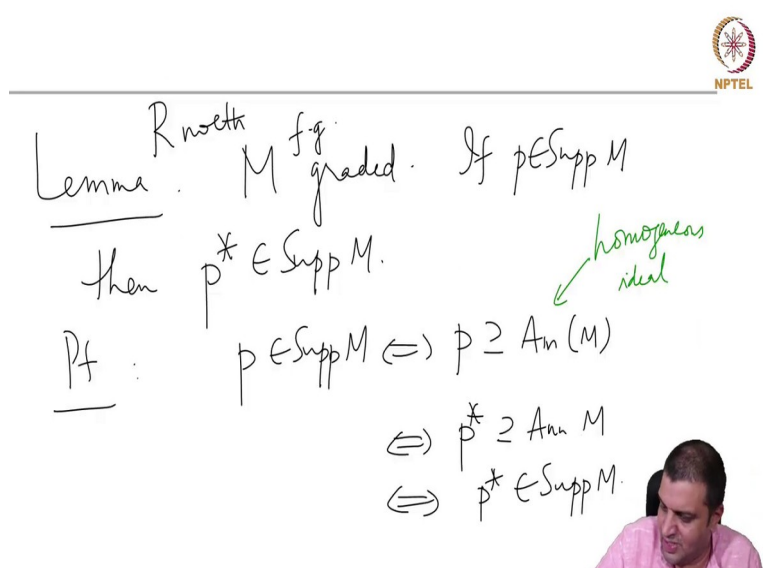 NPTEL
R noeth f.g.
Lemma. M graded. If p∈Supp M
then p* ∈ Supp M.
homogeneous
ideal
Pf : p ∈ Supp M ⇔ p ⊇ Ann (M)
⇔ p* ⊇ Ann M
⇔ p* ∈ Supp M.